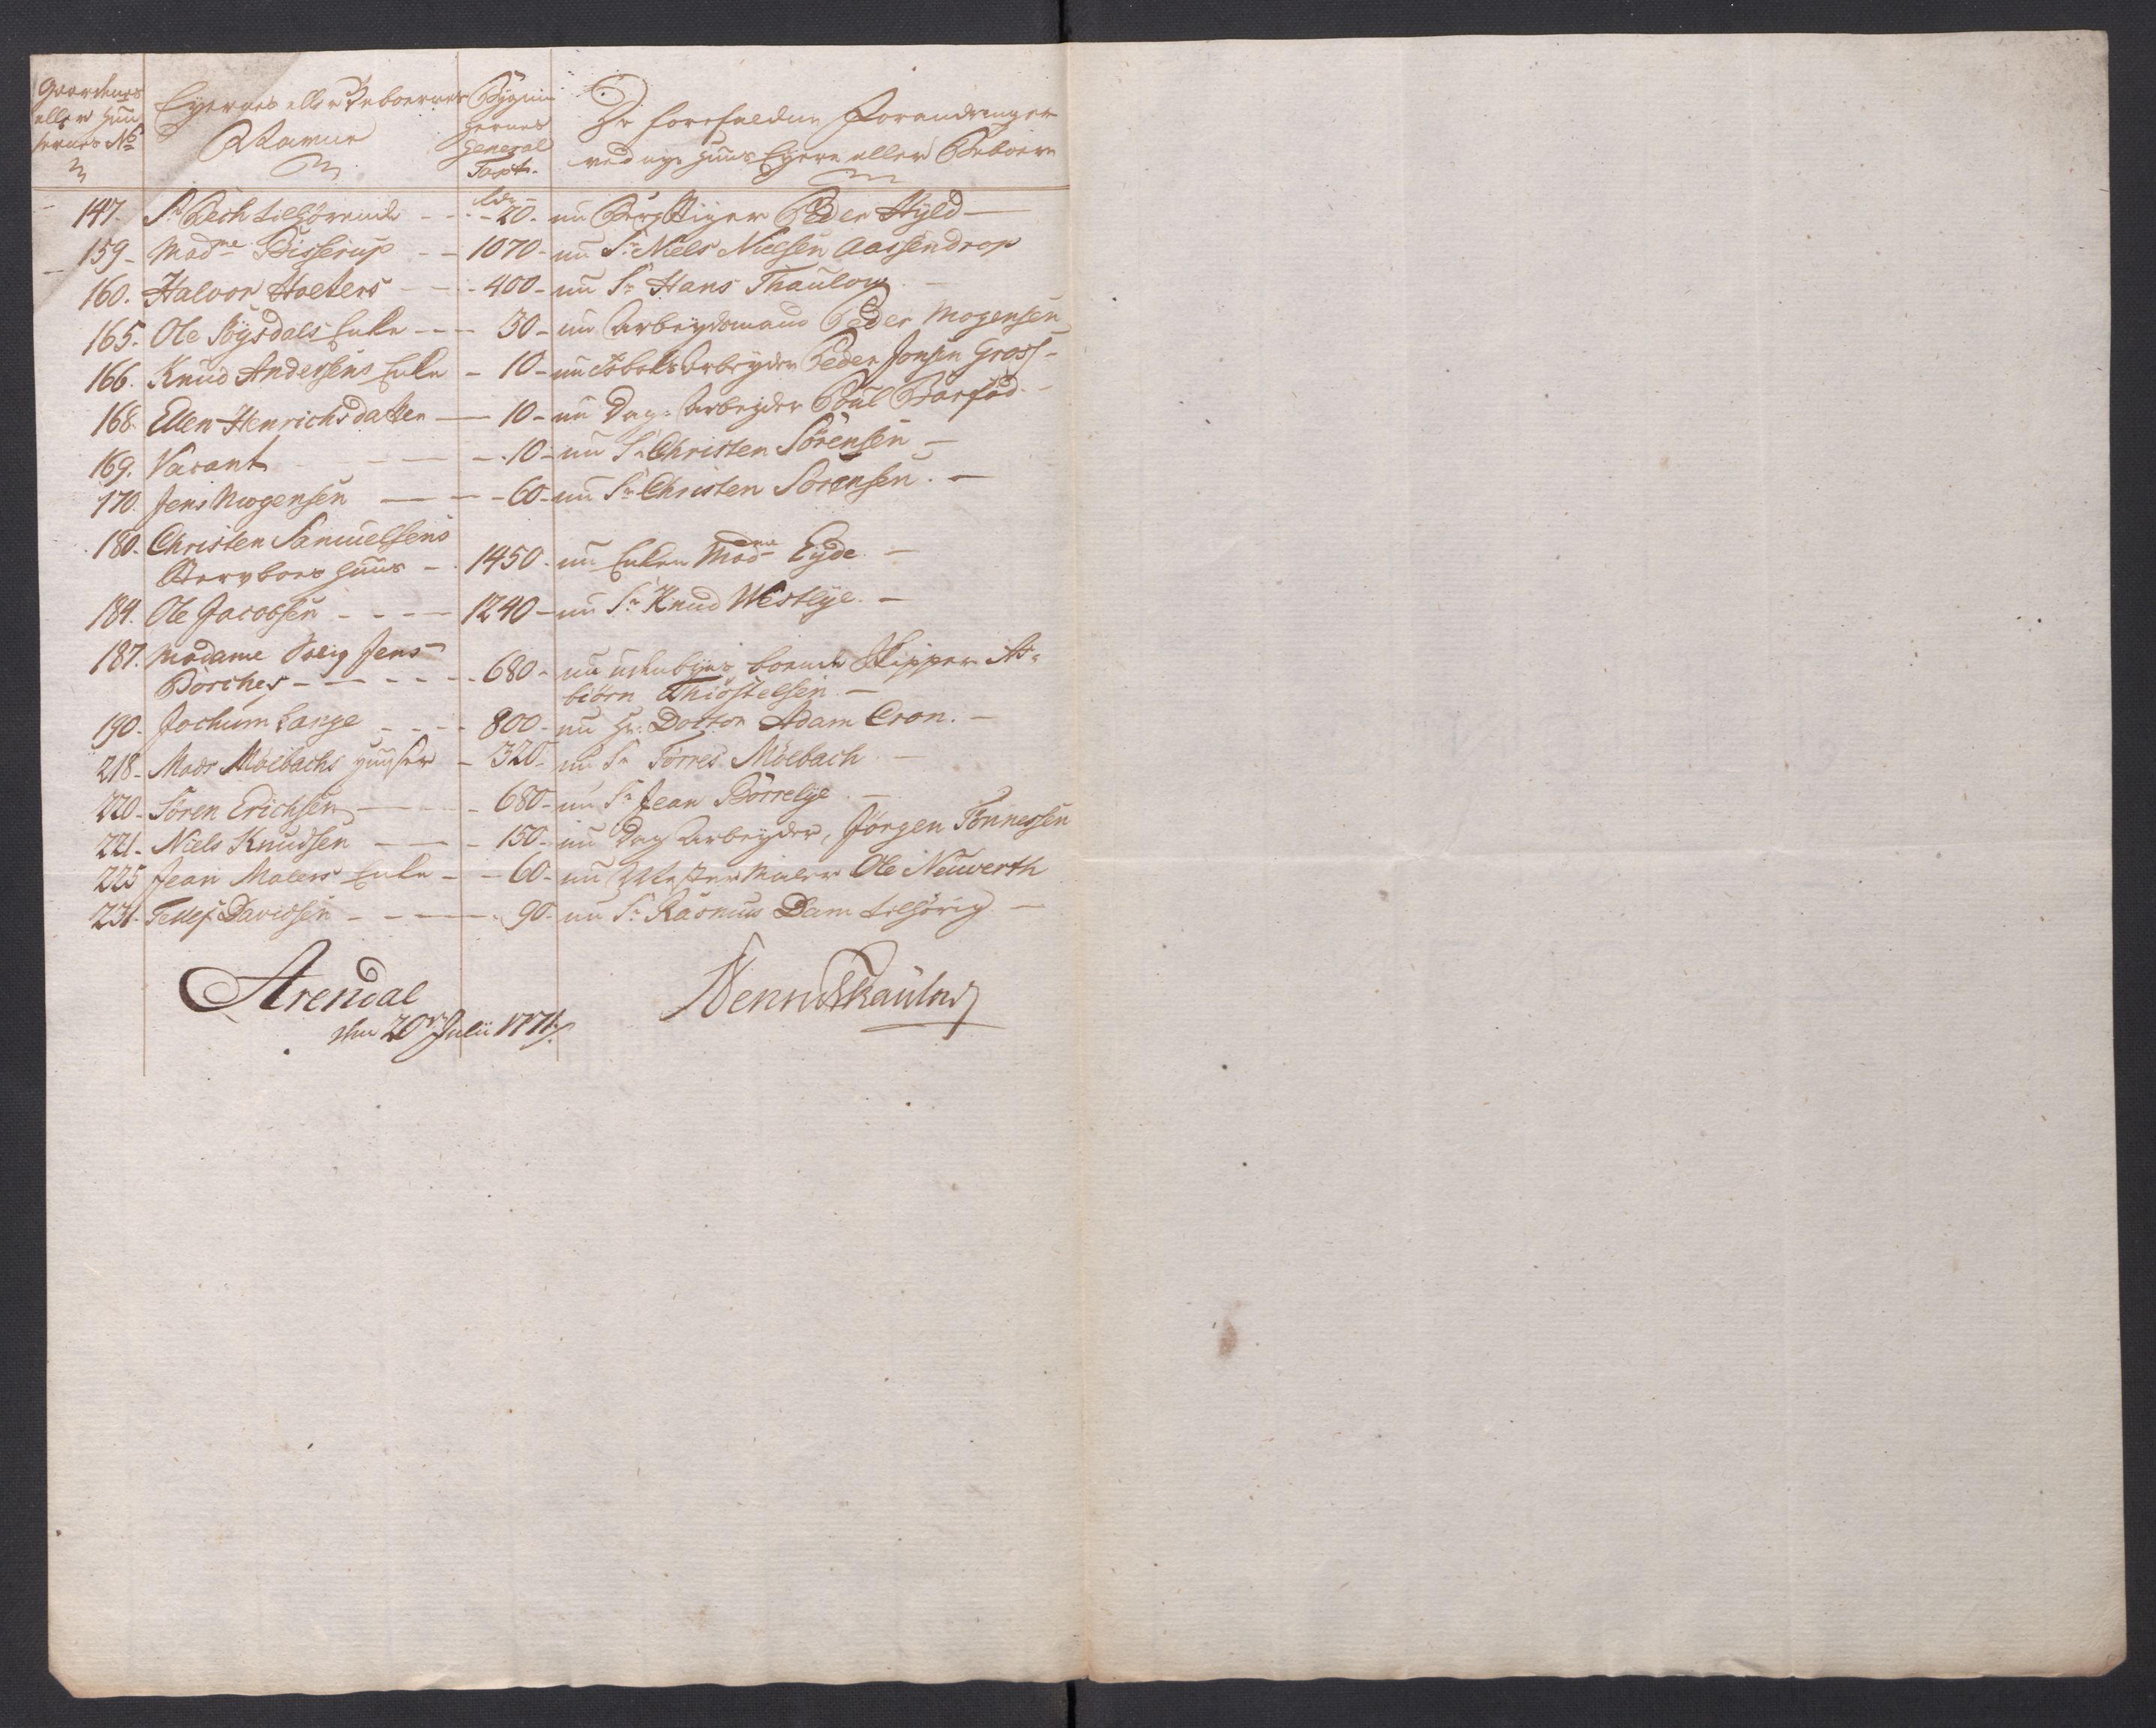 Gaardenes
eller Huu
sernes No
Eyernes eller Beboernes
Navne
Bygnin
gernes
General
Taxt.
De forefaldne Forandringer
ved nye Huus Eyere eller Beboere
rdr
147. Sr Bech tilhörende - - 20. nu Peder Hyld
159 - Madme Bisserup - - 1070 - nu Sr Niels Nielsen Aassendrop
160. Halvor Holters - - 400 - nu Sr Hans Thaulow
165. Ole Röysdals Enke - - 30 - nu Arbeydsmand Peder Mogensen
166. Knud Andersens Enke - 10 - nu Tobaks Arbeyder Peder Jonsen Gross -
168. Ellen Henrichsdatter - 10 - nu Dag-Arbeyder Poul Barfod
169. Vacant - - 10 - nu Sr Christen Sörensen -
170. Jens Mogensen - - 60 - nu Sr Christen Sörensen. -
180. Christen Samuelsens
Sterboes Huus - 1450 - nu Enken Madme Eyde. -
184. Ole Jacobsen - - 1240 - nu Sr Knud Westlye. -
187. Madame Salig Jens
Borches - - - 680 - nu udenbyes boende Skipper As-
biörn Thiöstelsen. -
190. Jochum Lange - - 800 - nu Hr: Doctor Adam Cron. -
218 - Mads Möebachs Huuser - 320 - nu Sr Torres Möebach -
220 - Sören Erichsen - - 680 - nu Sr Jean Börrelye. -
221 - Niels Knudsen - - 150 - nu Dag Arbeyder, Jörgen Tönnessen
225 Jean Malers Enke - - 60 - nu Mester Maler Ole Neuwerth
231. Tellef Davidsen - - - 90 - nu Sr Rasmus Dam tilhörig -
Arendal
den 20de Julii 1771.
Thaulow